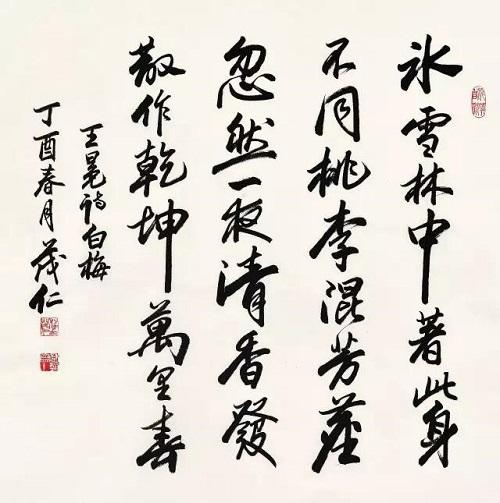 冰雪林中著此身
不同桃李混芳塵
忽然一夜清香發
散作乾坤萬里春
王冕詩白梅
丁酉春月茂仁